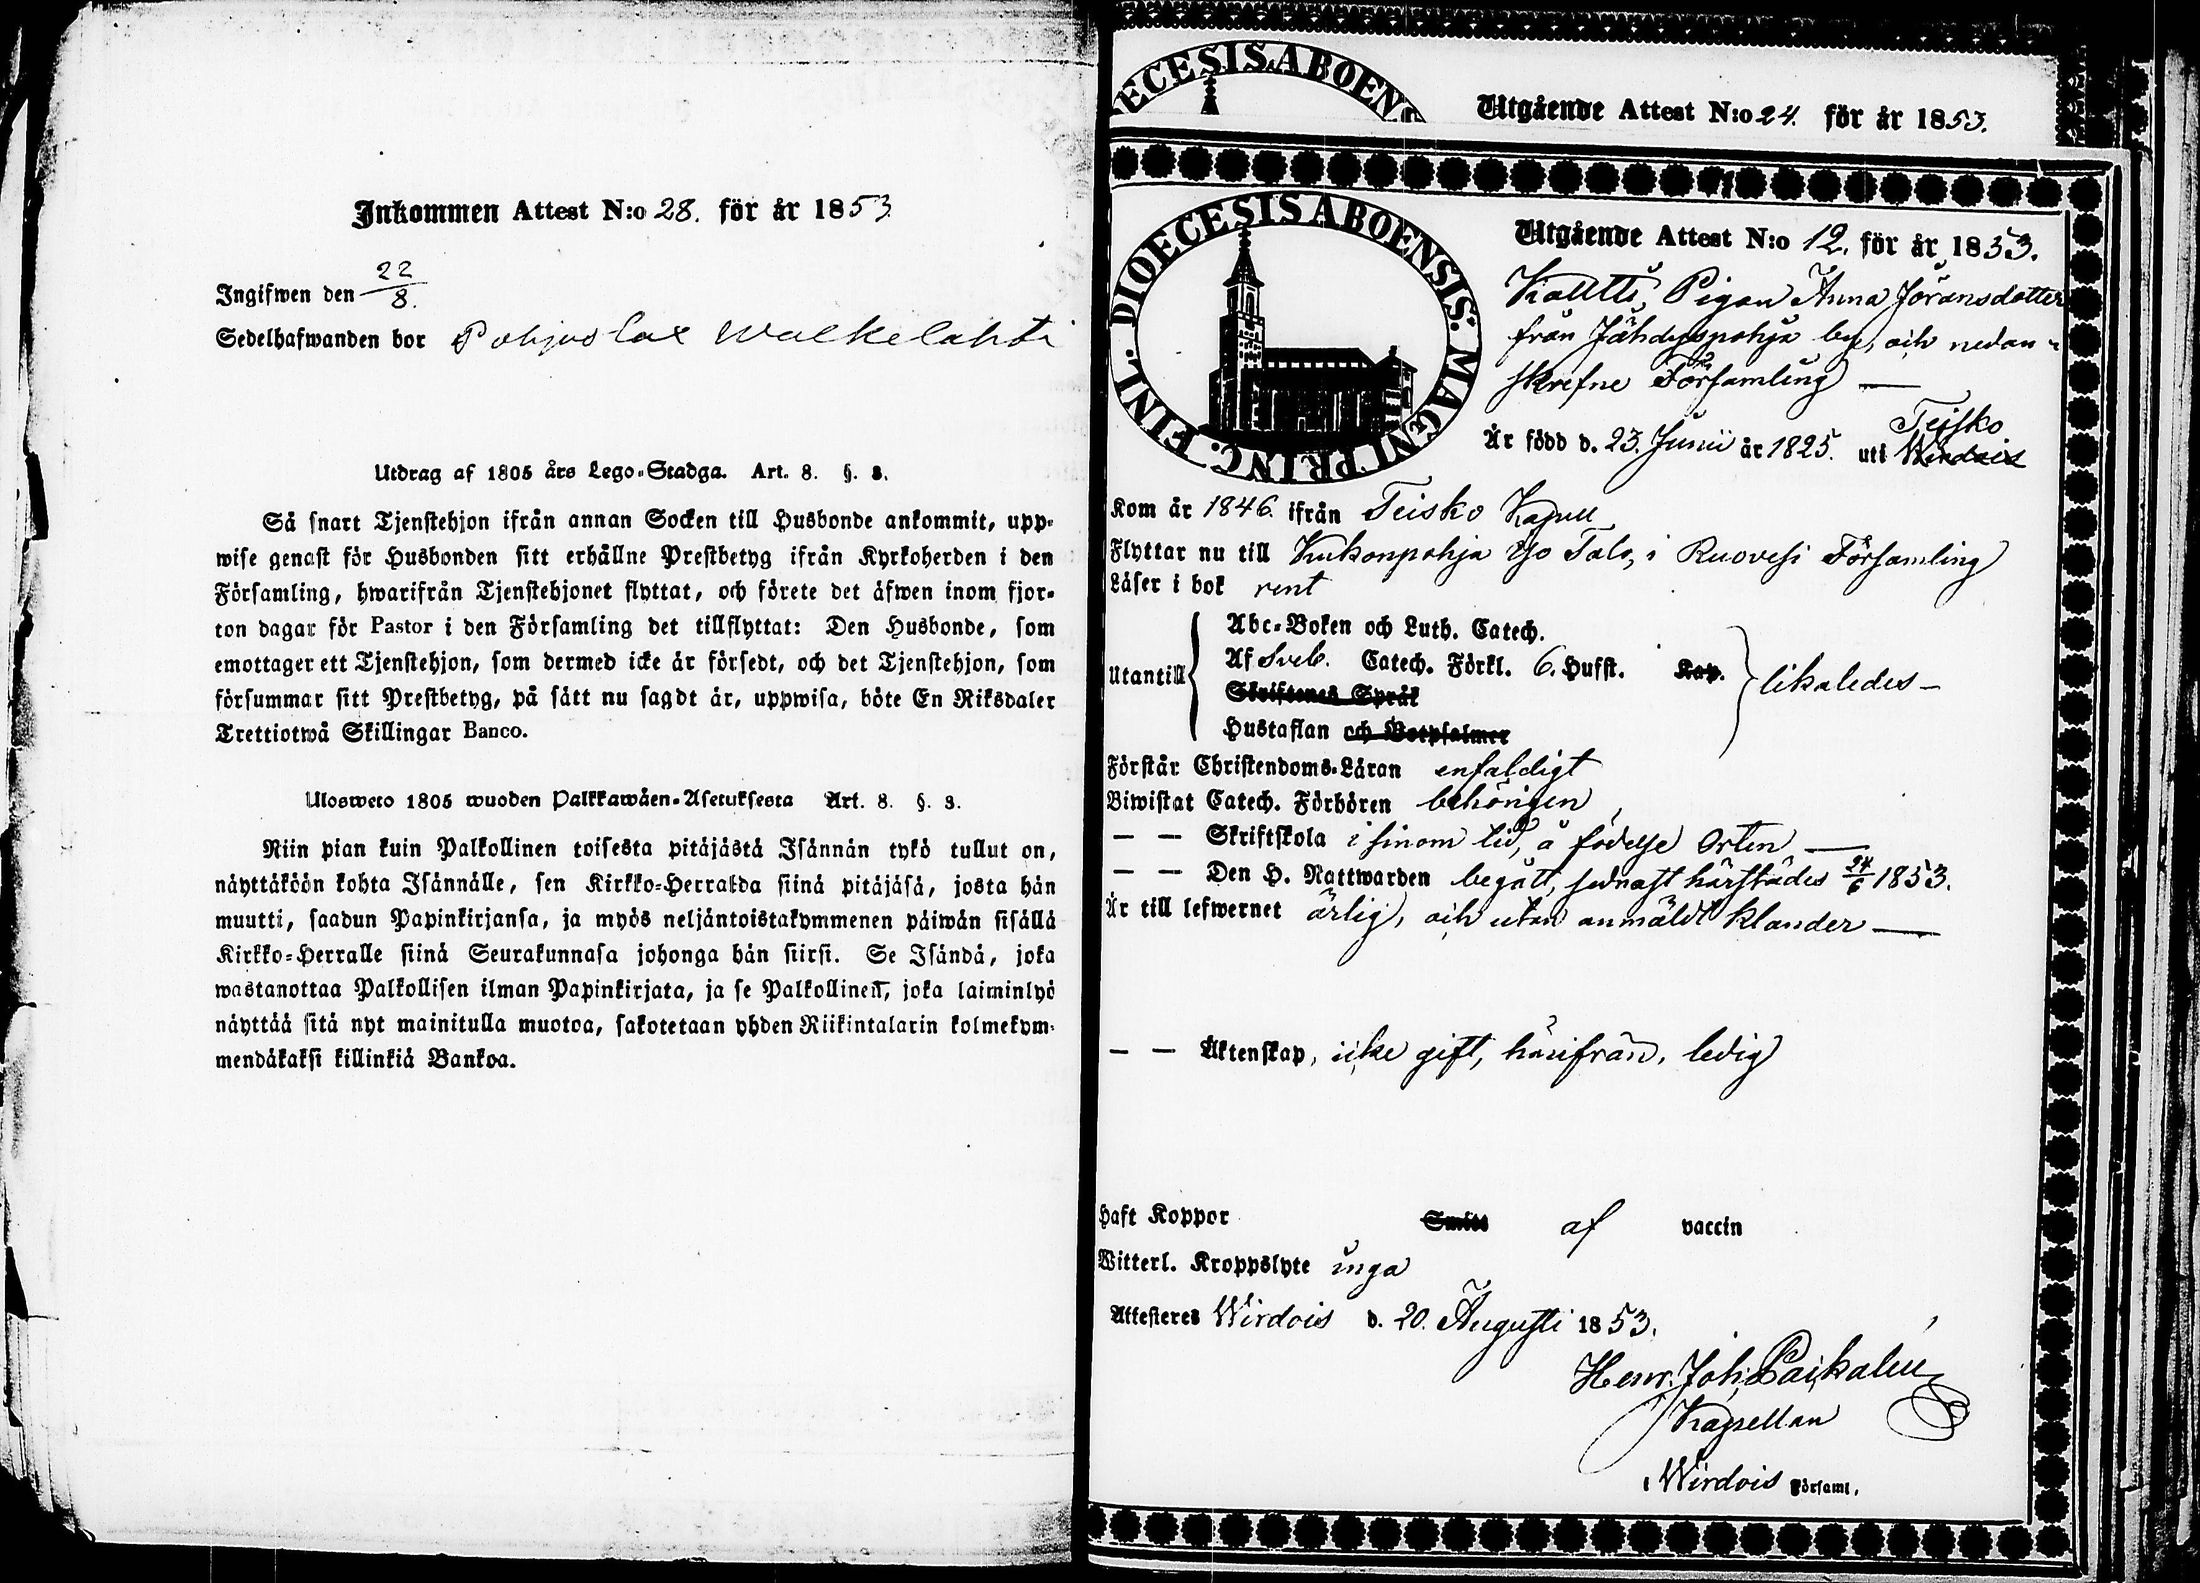 Inkommen Attest N:o 28. för år 1853
Ingifwen den 22/8.
Sedelhafwanden bor Pohjaslax Walkelahti
Utdrag af 1805 års Lego-Stadga. Art. 8. §. 3.
Så snart Tjenstehjon ifrån annan Socken till Husbonde ankommit, upp-
wise genast för Husbonden sitt erhållne Prestbetyg ifrån Kyrkoherden i den
Församling, hwarifrån Tjenstehjonet flyttat, och förete det äfwen inom fjor-
ton dagar för Pastor i den Församling det tillflyttat: Den Husbonde, som
emottager ett Tjenstehjon, som dermed icke är försedt, och det Tjenstehjon, som
försummar sitt Prestbetyg, på sätt nu sagdt är, uppwisa, böte En Riksdaler
Trettiotwå Skillingar Banco.
Ulosweto 1805 wuoden Palkkawäen-Asetuksesta Art. 8. §. 3.
Niin pian kuin Palkollinen toisesta pitäjästä Isännän tykö tullut on,
näyttäköön kohta Isännälle, sen Kirkko-Herralda siinä pitäjäsä, josta hän
muutti, saadun Papinkirjansa, ja myös neljäntoistakymmenen päiwän sisällä
Kirkko-Herralle siinä Seurakunnasa johonga hän siirsi. Se Isändä, joka
wastanottaa Palkollisen ilman Papinkirjata, ja se Palkollinen, joka laiminlyö
näyttää sitä nyt mainitulla muotoa, sakotetaan yhden Riikintalarin kolmekym-
mendäkaksi killinkiä Bankoa.
ECESIS ABOENS
Utgående Attest N:o 24. för år 1853.
DIOECESIS ABOENSIS. MAGNI PRINC. FINL.
Utgående Attest N:o 12. för år 1853.
Pigan Anna Göransdotter
från Jähdyspohja by, och nedan-
skrefne Församling —
Teisko
Är född d. 23. Junii år 1825. uti Wirdois
Kom år 1846. ifrån Teisko Kapell
Flyttar nu till Kukonpohja Yo Talo, i Ruovesi Församling
Läser i bok rent
Abc-Boken och Luth. Catech.
Utantill Af Sveb. Catech. Förkl. 6. Hufst. Kap. likaledes —
Skriftenes Språk
Hustaflan och Botpsalmer
Förstår Christendoms-Läran enfaldigt
Biwistat Catech. Förhören behörigen
— — Skriftskola i sinom tid, å födelse Orten —
— — Den H. Nattwarden begått, sednast härstädes 24/6 1853.
Är till lefwernet ärlig, och utan anmäldt klander —
— — Äktenskap, icke gift, härifrån, ledig
Haft Koppor Smitt af vaccin
Witterl. Kroppslyte inga
Attesteres Wirdois d. 20. Augusti 1853.
Henr. Joh. Paikalén
Kapellan
i Wirdois Församl.